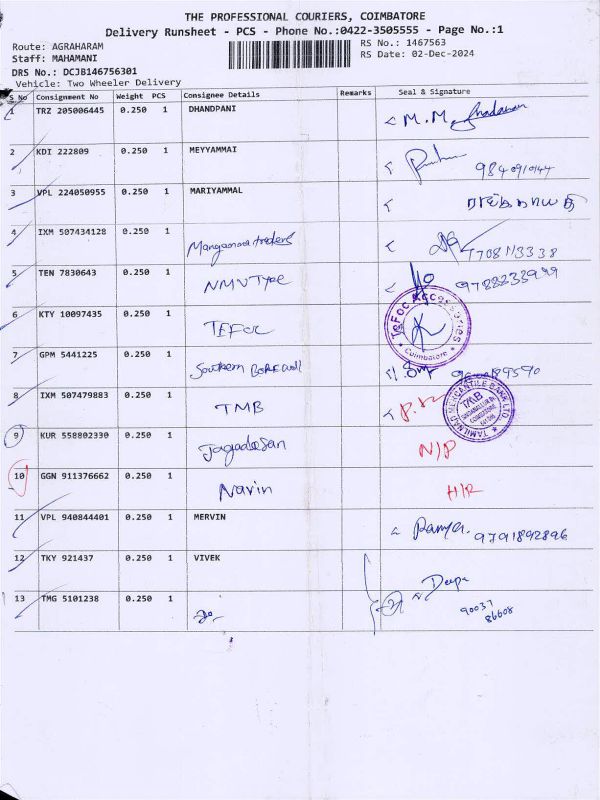 THE PROFESSIONAL COURIERS, COIMBATORE
Delivery Runsheet - PCS - Phone No.:0422-3505555 - Page No.:1
Route: AGRAHARAM
RS No.: 1467563
Staff: MAHAMANI
RS Date: 02-Dec-2024
DRS No.: DCJB146756301
Vehicle: Two Wheeler Delivery
S No Consignment No Weight PCS Consignee Details Remarks Seal & Signature
1 TRZ 205006445 0.250 1 DHANDPANI M.M.
2 KDI 222809 0.250 1 MEYYAMMAI
3 VPL 224050955 0.250 1 MARIYAMMAL
4 IXM 507434128 0.250 1
5 TEN 7830643 0.250 1 NMV Type
6 KTY 10097435 0.250 1 TEFOC
TeFoc Accessories
Coimbatore
7 GPM 5441225 0.250 1 Southern
8 IXM 507479883 0.250 1 TMB
TAMILNAD MERCANTILE BANK LTD
TMB
9 KUR 558802330 0.250 1 Jagadesan N/P
10 GGN 911376662 0.250 1 Navin
11 VPL 940844401 0.250 1 MERVIN Ramya. 9791892896
12 TKY 921437 0.250 1 VIVEK
Deepa
13 TMG 5101238 0.250 1 90037
86608